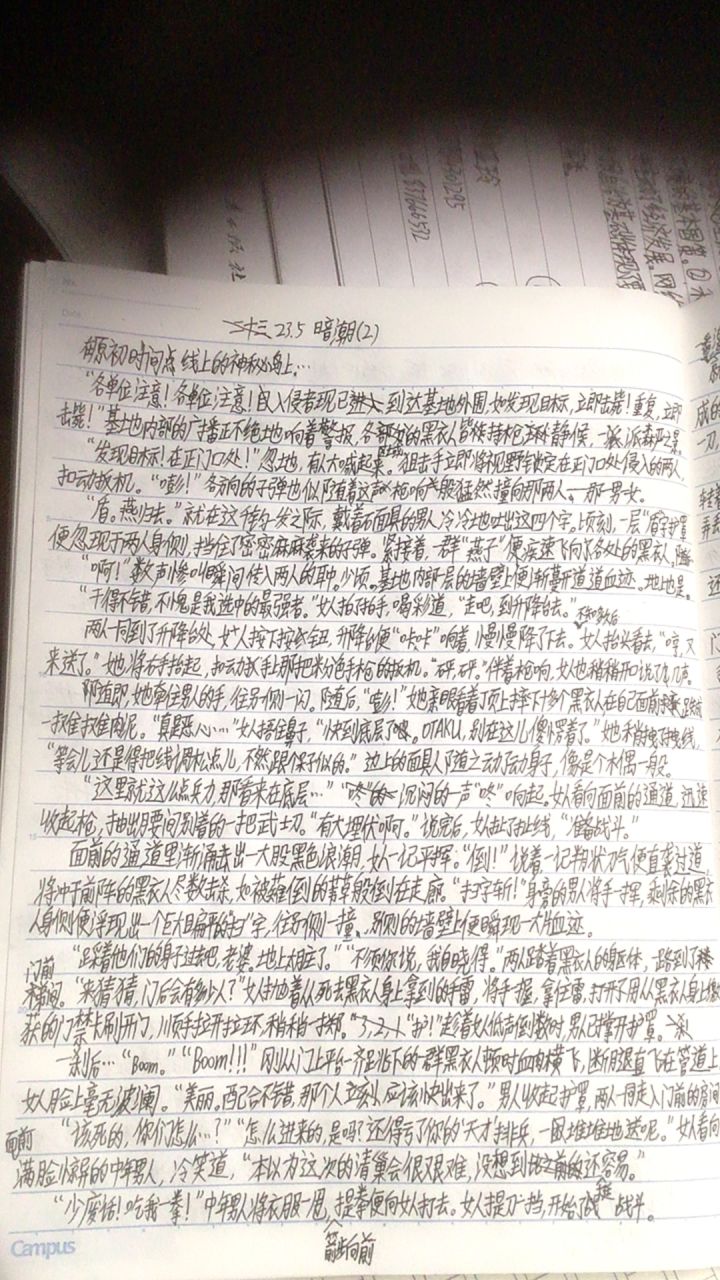 23.5 暗潮(2)
有原初时间点线上的神秘岛上…
“各单位注意!各单位注意!自入侵者现已到达基地外围,如发现目标,立即击毙!重复,立即
击毙!”基地内部的广播正不绝地响着警报,各部的黑衣人皆持枪静候,一派森严之景
“发现目标!在正门口处!”忽地,有人大喊起来。狙击手立即将视野锁定在正门口处侵入的两人,
扣动扳机。“嘭!”各方向的子弹也似随着这声枪响般猛然撞向那两人——那一男一女。
“盾。燕归去。”就在这千钧一发之际,戴着面具的男人冷冷地吐出这四个字。顷刻,一层“盾”字护罩
便忽现于两人身侧,挡住了密密麻麻袭来的子弹。紧接着,一群“燕子”便疾速飞向了各处的黑衣人,
“啊!”数声惨叫瞬间传入两人的耳中。少顷。基地内部一层的墙壁上便渐蔓开道道血迹。地上也是。
“干得不错,不愧是我选中的最强者。”女人拍拍手,喝彩道,“走吧,到升降台去。”
两人一同到了升降台处,女人按下按钮,升降台便“咔咔”响着,慢慢降了下去。女人抬头看去,“哼,又
来送了。”她将右手抬起,扣动扳手上那把米粉色手枪的扳机。“砰,砰。”伴着枪响,女人也稍稍开口说了几声。
随即,她牵住男人的手,往旁侧一闪。随后,“嘭!”她亲眼看着顶上摔下十多个黑衣人在自己面前
一坨坨肉泥。“真是恶心…”女人捂住鼻子,“快到底层了噢。OTAKU,别在这儿傻愣着了。”她稍拽了拽线,
“等会儿还是得把线调松点儿,不然跟保子似的。”边上的面具人随之动了动身子,像是个木偶一般。
“这里就这么点兵力,那看来在底层…”沉闷的一声“咚”响起。女人看向面前的通道,迅速
收起枪,抽出腰间别着的一把武士刀。“有大埋伏啊。”说完后,女人扯了扯线,“准备战斗。”
面前的通道里渐涌出一大股黑色浪潮,女人一记平挥:“倒!”说着一记弧状刀气便直袭过道,
将冲于前阵的黑衣人尽数击杀,如被薙倒的蓍草般倒在走廊。“扫字斩!”身旁的男人将手一挥,剩余的黑衣
人身侧便浮现出一个巨大扁平的“扫”字,往旁侧一撞、别侧的墙壁上便瞬现一大片血迹。
“踩着他们的身子过去吧,老婆。地上太脏了。”“不须你说,我自晓得。”两人踏着黑衣人的躯体,一路到了
门前。“来猜猜,门后会有多少人?”女人掂着从死去黑衣人身上拿到的手雷,将手握,拿住雷,打开了用从黑衣人身上
获的门禁卡刷开门,顺手拉开拉环,稍稍一掷。“3,2,1”“护!”趁着女人低声倒数时,男人已撑开护罩。
一刹后…“Boom。”“Boom!!!”刚从门上平台一齐跳下的一群黑衣人顿时血肉横飞,断肢退直飞在管道上
女人脸上毫无波澜。“美丽。配合不错,那个人应该快出来了。”男人收起护罩,两人一同走入门前的房间
“该死的,你们怎么…?”“怎么进来的,是吗?还得亏了你的‘天才排兵’,一团堆堆地送呢。”女人看向面前
满脸惊骇的中年男人,冷笑道,“本以为这次的清巢会很艰难,没想到比之前的还容易。”
“少废话!吃我一拳!”中年男人将衣服一甩,箭步向前提拳便向女人打去。女人提刀一挡,开始了战斗。
Campus